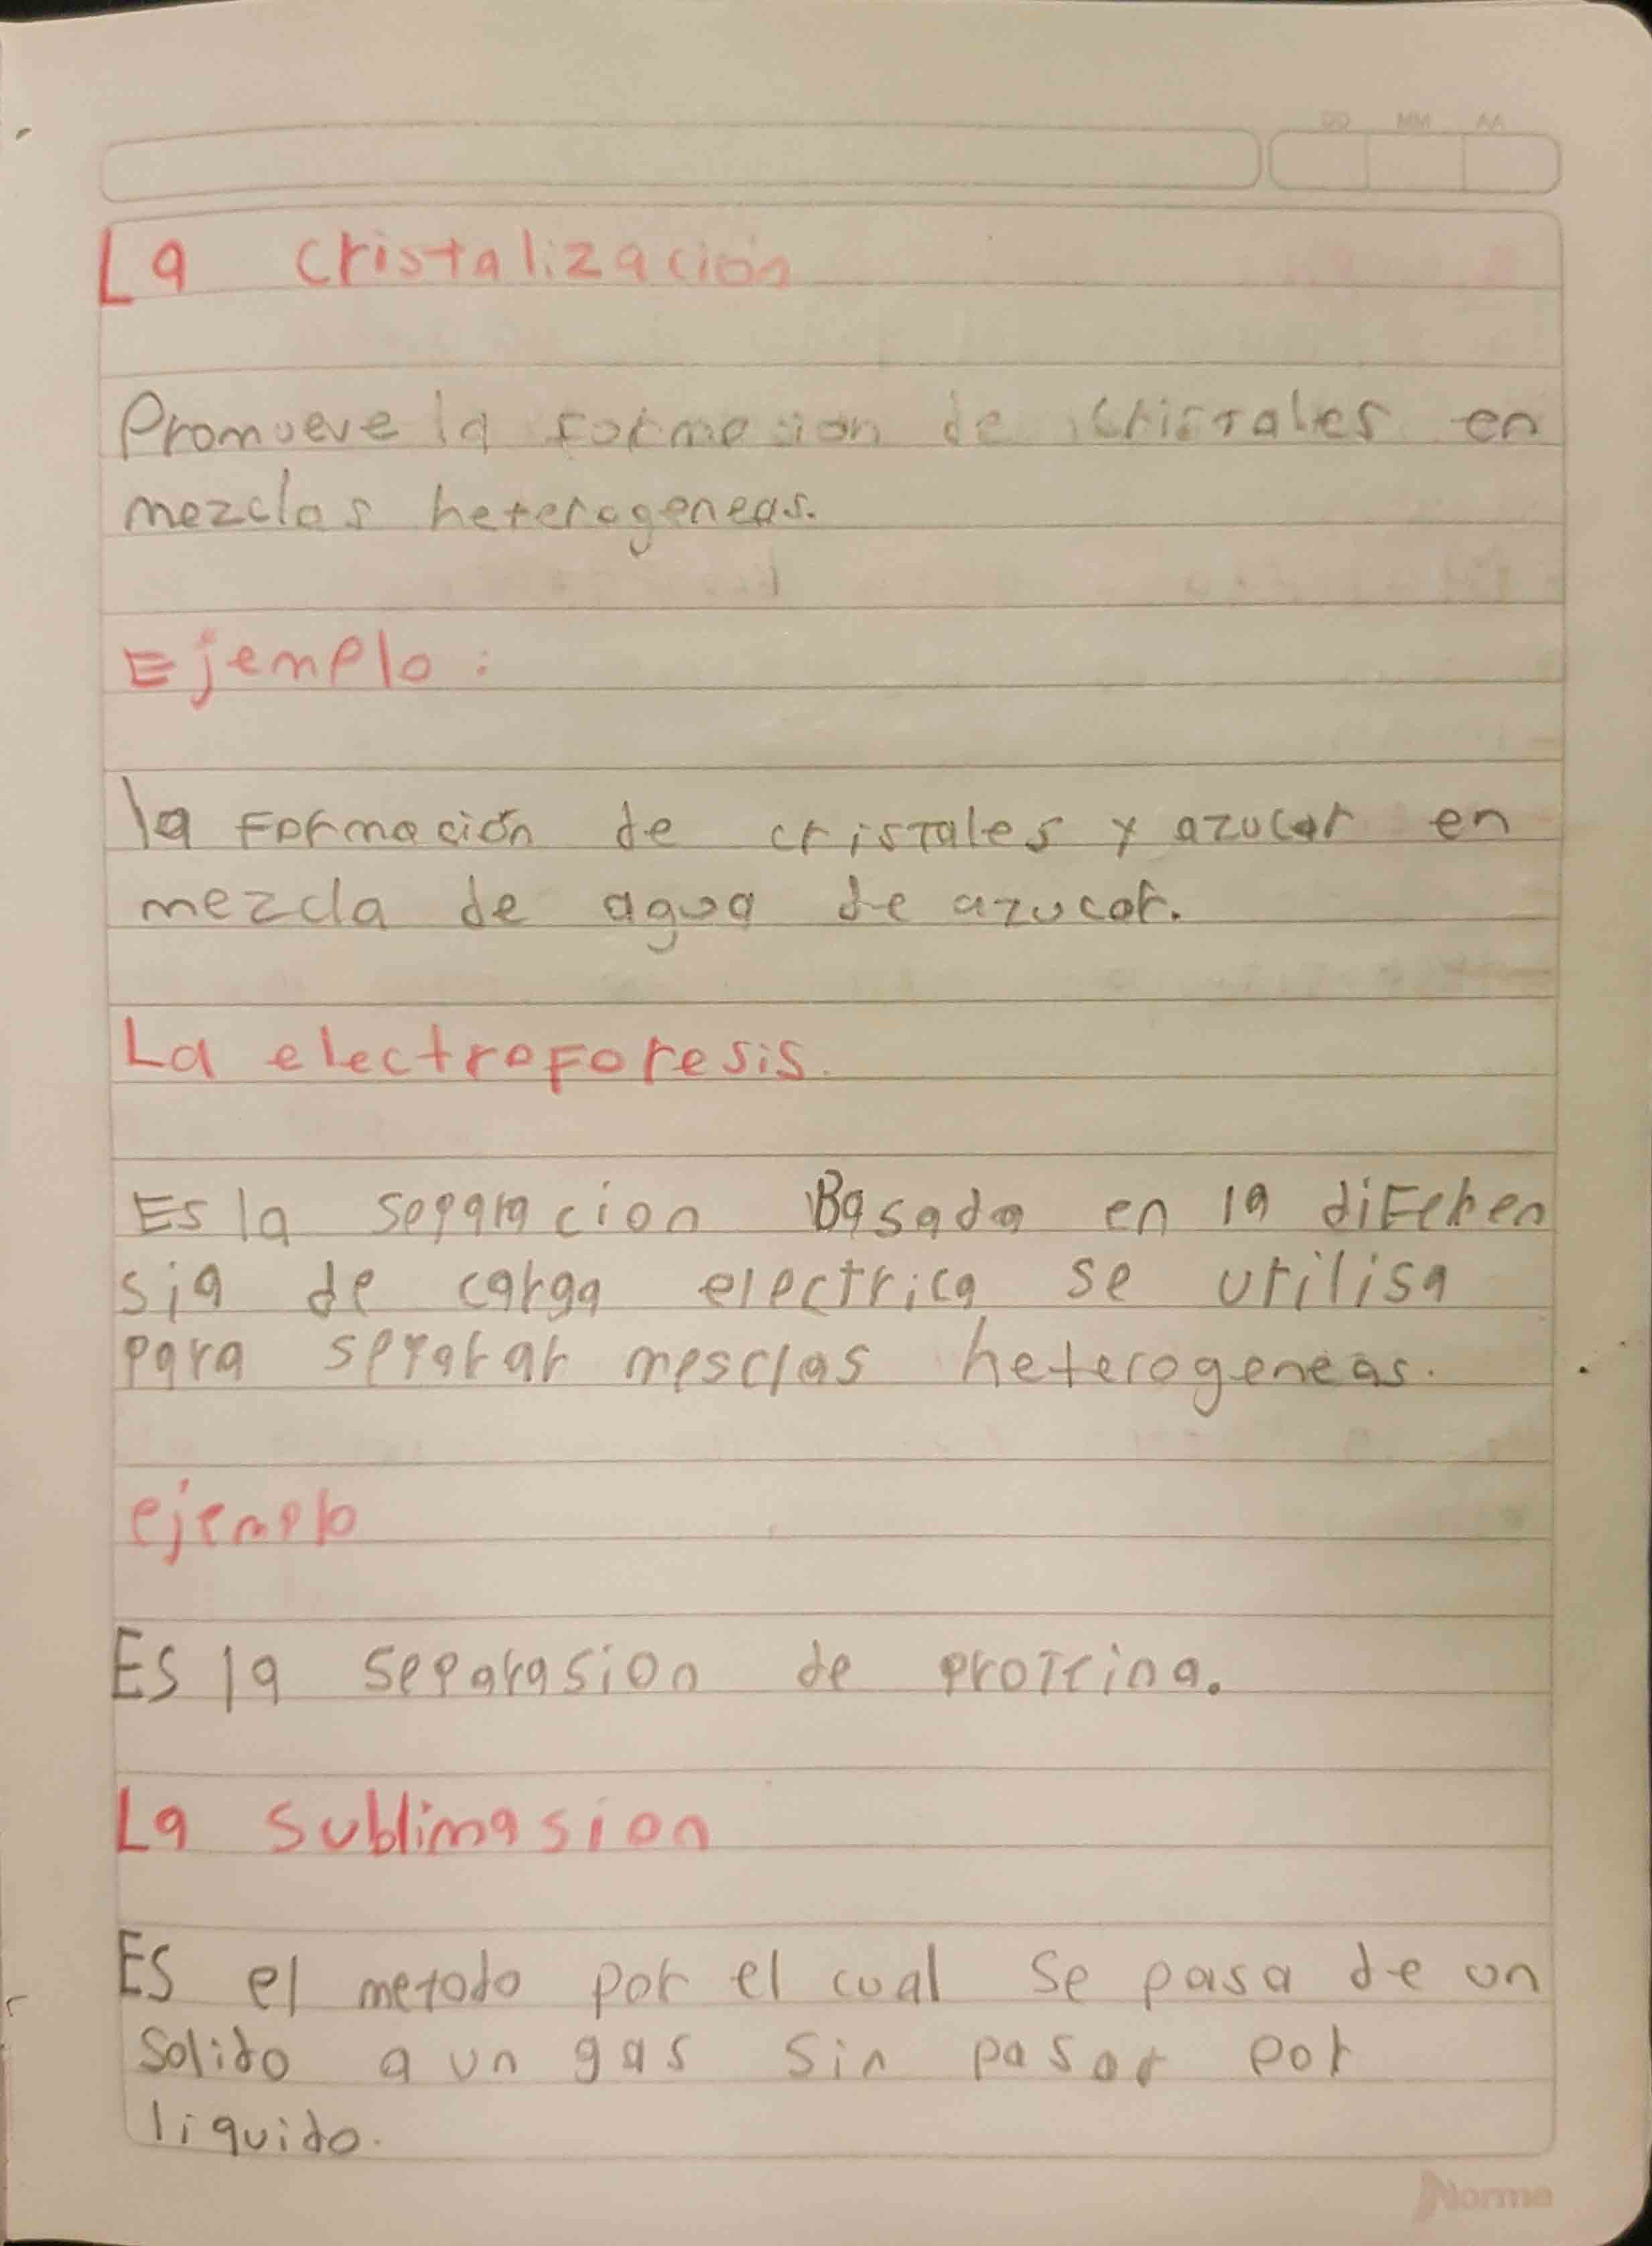 DD MM AA
La cristalización
Promueve la formacion de cristales en
mezclas heterogeneas.
Ejemplo:
la Formación de cristales y azucar en
mezcla de agua de azucar.
La electroforesis.
Es la separacion Basada en la diferen
sia de carga electrica se utilisa
para separar mesclas heterogeneas.
ejemplo
Es la separasion de proteina.
La sublimasion
Es el metodo por el cual se pasa de un
solido a un gas sin pasar por
liquido.
Norma